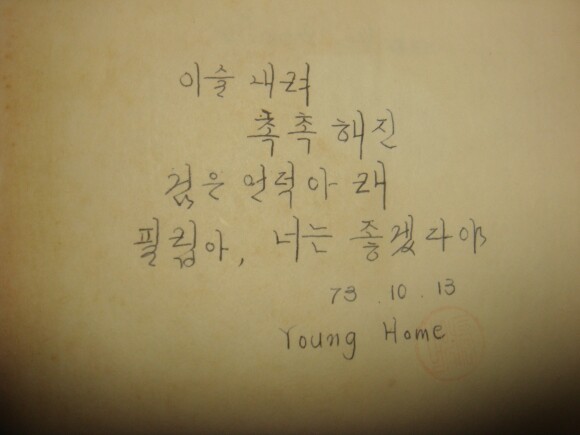 이슬 내려
촉촉해진
검은 언덕아래
필립아, 너는 좋겠다야
73. 10. 13
Young Home